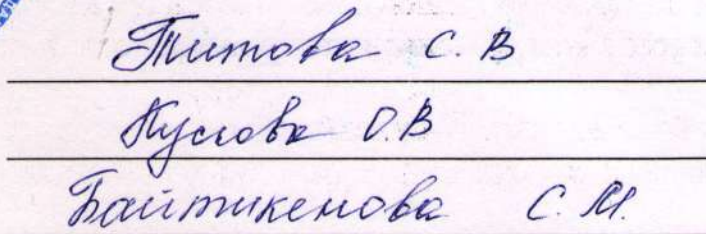 Титова С. В
Кусова О.В
Байтикенова С. М.